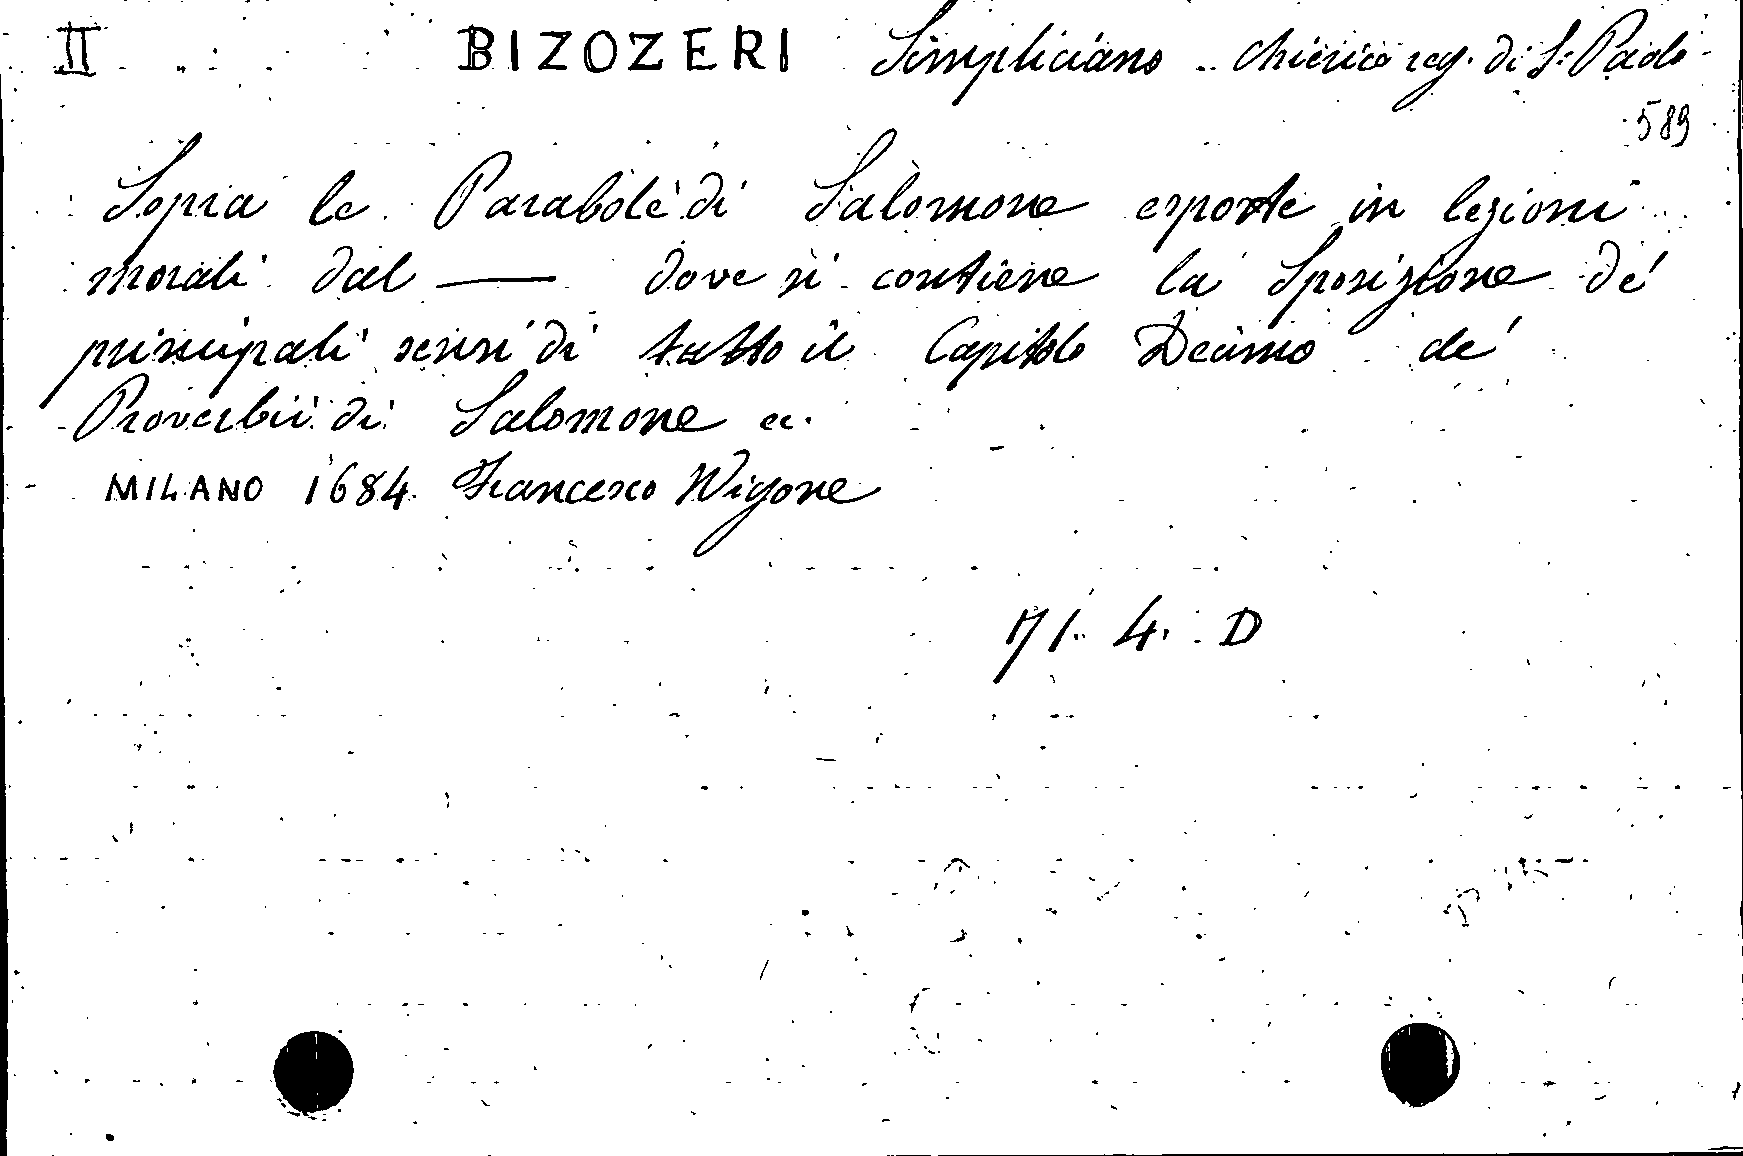 II BIZOZERI Simpliciano - Chierico reg. di S. Paolo
589
Sopra le Parabole di Salomone esposte in lezioni
morali dal —— dove si contiene la Sposizione de'
principali sensi di tutto il Capitolo Decimo de'
Proverbii di Salomone ec.
MILANO 1684 Francesco Vigone
71. 4. D